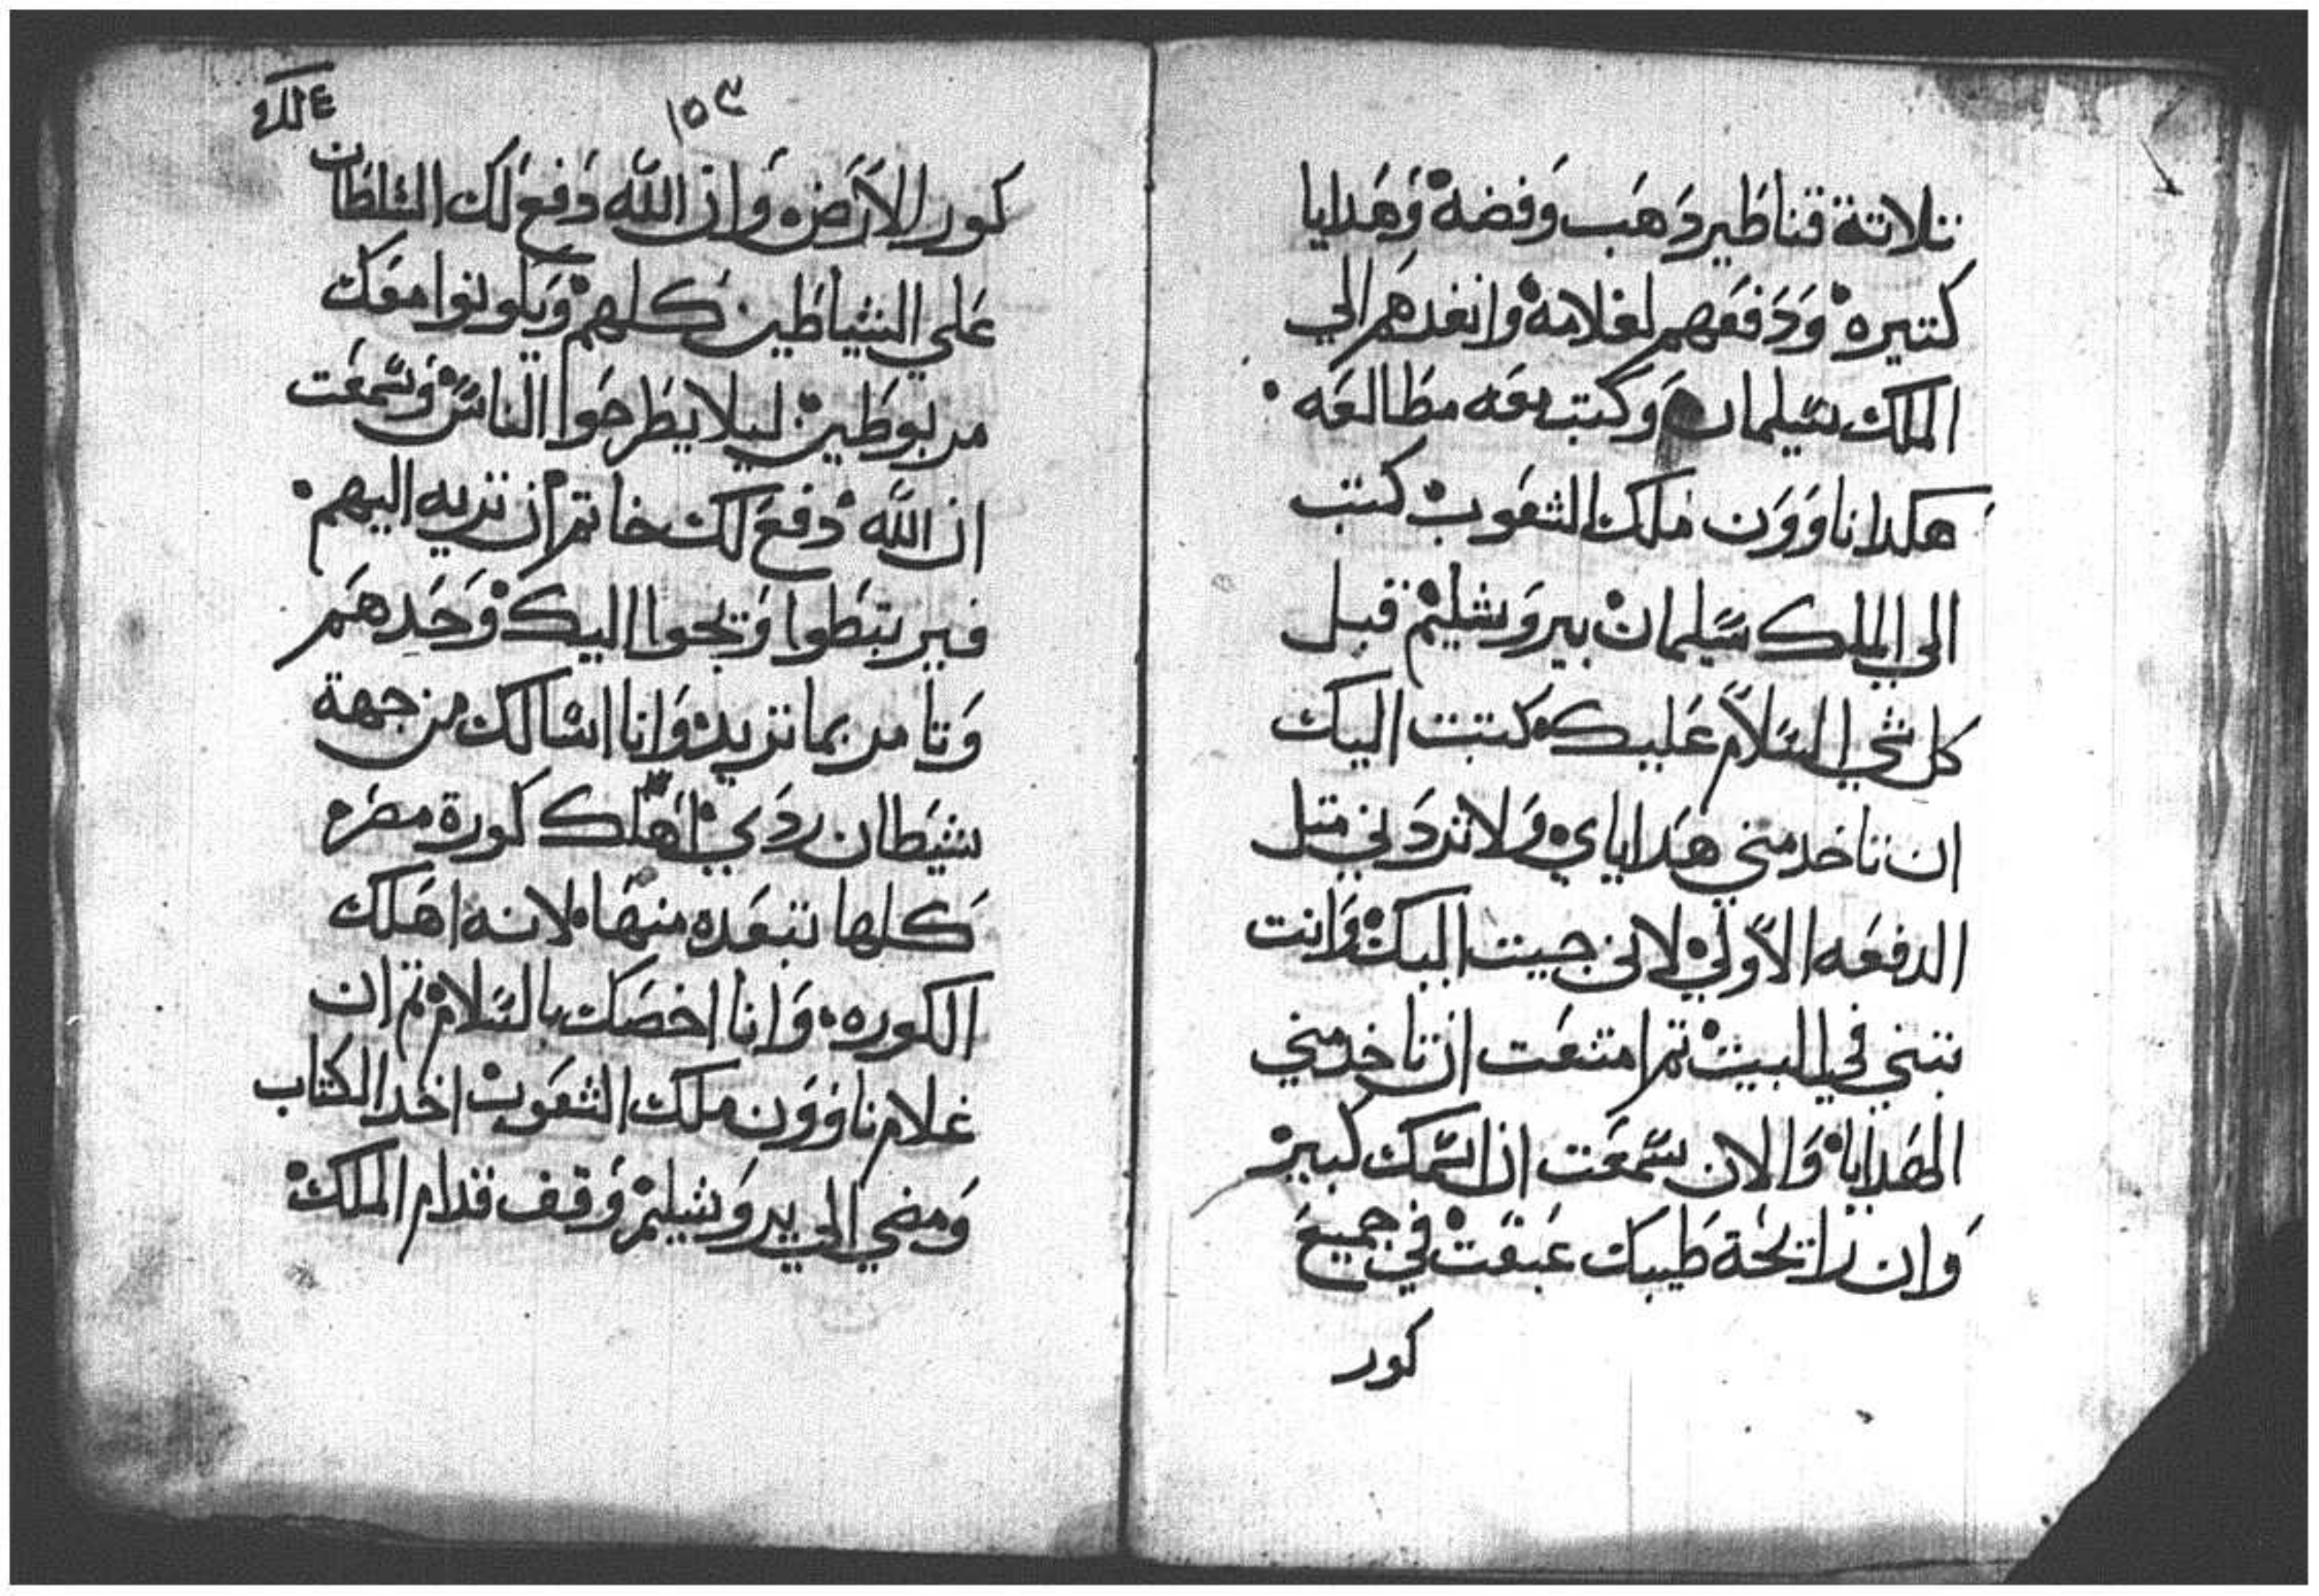 تلاتة قناطير دهب وفضه وهدايا
كتيره ودفعهم لغلامه وانفدهم الي
الملك سليمان وكتب معه مطالعه
هكدا ناوون ملك الشعوب كتب
الي الملك سليمان بيروشليم قبل
كل شي السلام عليك كتبت اليك
ان تاخد مني هداياي ولا تردني متل
الدفعه الاولي لاني جيت اليك وانت
تبني في البيت تم امتنعت ان تاخد مني
الهدايا والان سمعت ان اسمك كبير
وان رايحة طيبك عبقت في جميع
كور
١٥٣
كور الارض وان الله دفع لك السلطان
علي الشياطين كلهم ويكونوا معك
مربوطين ليلا يطرحوا الناس وسمعت
ان الله دفع لك خاتم ان تريه اليهم
فيرتبطوا ويجوا اليك وحدهم
وتامر بما تريد وانا اسالك من جهة
شيطان ردي اهلك كورة مصر
كلها تبعده منها لانه اهلك
الكوره وانا اخصك بالسلام تم ان
غلام ناوون ملك الشعوب اخد الكتاب
ومضي الي يروشليم وقف قدام الملك